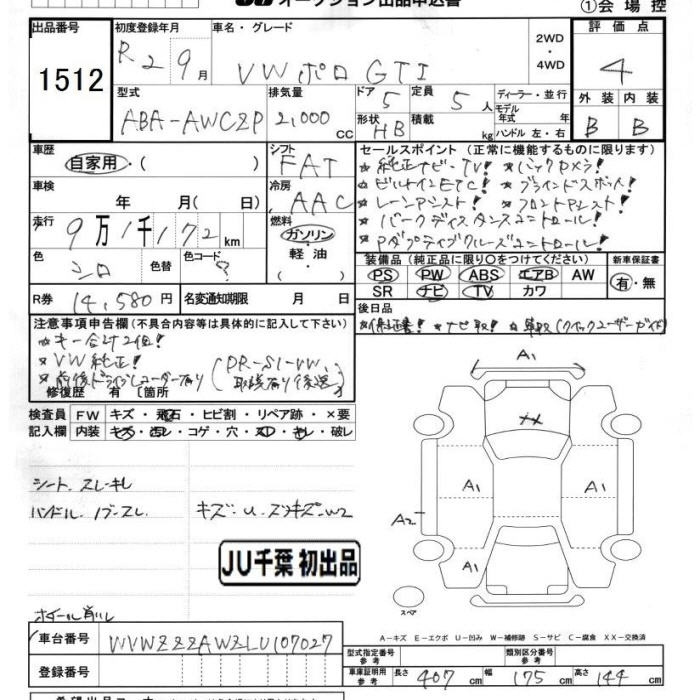 オークション出品申込書
①会場控
出品番号
1512
初度登録年月
R2 9月
車名・グレード
VW ポロ GTI
2WD
・
4WD
評価点
4
外装 内装
B B
型式
ABA-AWCZP
排気量
2,000 cc
ドア 5
定員 5人
形状 HB
積載 kg
ディーラー・並行
モデル年式 年式
ハンドル 左・右
車歴
自家用・( )
シフト
FAT
車検 年 月( 日)
冷房
AAC
走行 9万1千172km
燃料
ガソリン・
軽油
・( )
色 シロ
色替
色コード
R券 14,580円
名変通知期限 月 日
セールスポイント (正常に機能するものに限ります)
★純正ナビ・TV! ★バックカメラ!
★ビルトインETC! ★ブラインドスポット!
★レーンアシスト! ★フロントアシスト!
★パークディスタンスコントロール!
★アダプティブクルーズコントロール!
装備品(純正品に限り○をつけてください) 新車保証書
PS PW ABS エアB AW
SR ナビ TV カワ
有・無
後日品
★保証書! ★ナビ取! ★車取(クイックユーザーガイド)
注意事項申告欄(不具合内容等は具体的に記入して下さい)
★キー合計2個!
★VW純正!
★前後ドライブレコーダーあり(DR-S1-VW、
取説あり後送)
修復歴 有 〔箇所
検査員 FW キズ・飛石・ヒビ割・リペア跡・×要
記入欄 内装 キズ・汚レ・コゲ・穴・スレ・キレ・破レ
シート、スレ・キレ
ハンドル、ノブ・スレ
キズ・U・スリキズ・W2
JU千葉 初出品
ホイール削レ
A1
A1
A1
A2
A1
A1
スペア
A-キズ E-エクボ U-凹み W-補修跡 S-サビ C-腐食 XX-交換済
車台番号 WVWZZZAWZLU107027
登録番号
型式指定番号 参考
類別区分番号 参考
車庫証明用 参考 長さ 407cm 幅 175cm 高さ 144cm